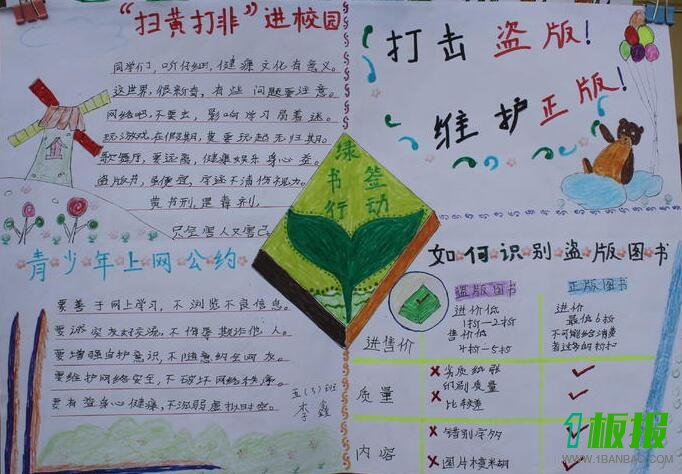 “扫黄打非”进校园
同学们，听仔细，健康文化有意义。
这世界，很新奇，有些问题要注意。
网络吧，不要去，影响学习易着迷。
玩游戏，在假期，莫要玩起无归期。
歌舞厅，要远离，健康娱乐身心益。
盗版书，虽便宜，字迹不清伤视力。
黄书刊，是毒剂，
只会害人又害己
打击盗版!
维护正版!
绿书签行动
青少年上网公约
要善于网上学习，不浏览不良信息。
要诚实友好交流，不侮辱欺诈他人。
要增强自护意识，不随意约会网友。
要维护网络安全，不破坏网络秩序。
要有益身心健康，不沉溺虚拟时空。
五(3)班
李鑫
如何识别盗版图书
盗版图书 正版图书
进售价
进价低
1折-2折
售价低
4折-5折
进价
最低6折
不可能给消费者过多的折扣
质量
劣质纸张
印刷质量
比较差
内容
错别字多
图片模糊
1板报
WWW.1BANBAO.COM